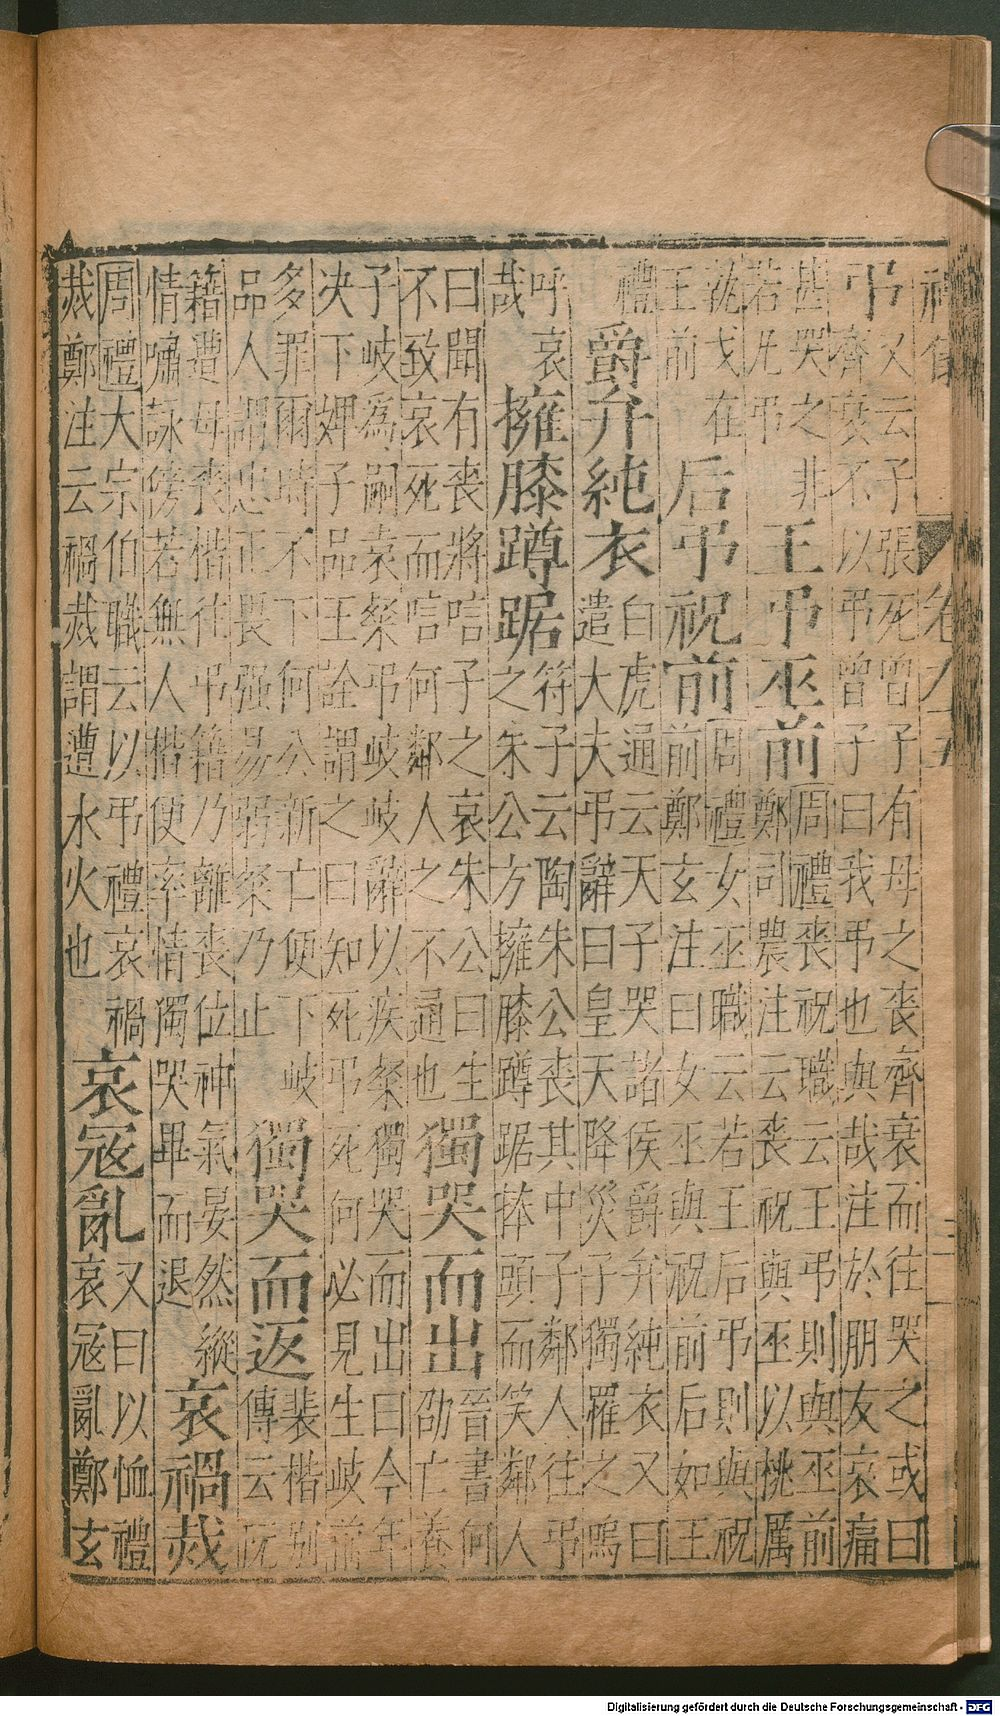 弔
又云子張死曾子有母之喪齊衰而往哭之或曰
齊衰不以弔曾子曰我弔也與哉注於朋友哀痛
甚哭之非
若凡弔
王弔巫前
周禮喪祝職云王弔則與巫前
鄭司農注云喪祝與巫以桃厲
執戈在
王前
后弔祝前
周禮女巫職云若王后弔則與祝
前鄭玄注曰女巫與祝前后如王
禮
爵弁純衣
白虎通云天子哭諸侯爵弁純衣又曰
遣大夫弔辭曰皇天降災子獨罹之嗚
呼哀
哉
擁膝蹲踞
符子云陶朱公喪其中子鄰人往弔
之朱公方擁膝蹲踞捧頭而笑鄰人
曰聞有喪將唁子之哀朱公曰生
不致哀死而唁何鄰人之不通也
獨哭而出
晉書何
劭亡養
子岐為嗣袁粲弔岐岐辭以疾粲獨哭而出曰今年
决下婢子品王詮謂之曰知死弔死何必見生岐前
多罪爾時不下何公新亡便下岐
品人謂忠正畏强易弱粲乃止
獨哭而返
裴楷別
傳云阮
籍遭母喪楷往弔籍乃離喪位神氣晏然縱
情嘯詠傍若無人楷便率情獨哭畢而退
哀禍烖
周禮大宗伯職云以弔禮哀禍
烖鄭注云禍烖謂遭水火也
哀冦亂
又曰以恤禮
哀冦亂鄭玄
Digitalisierung gefördert durch die Deutsche Forschungsgemeinschaft - DFG